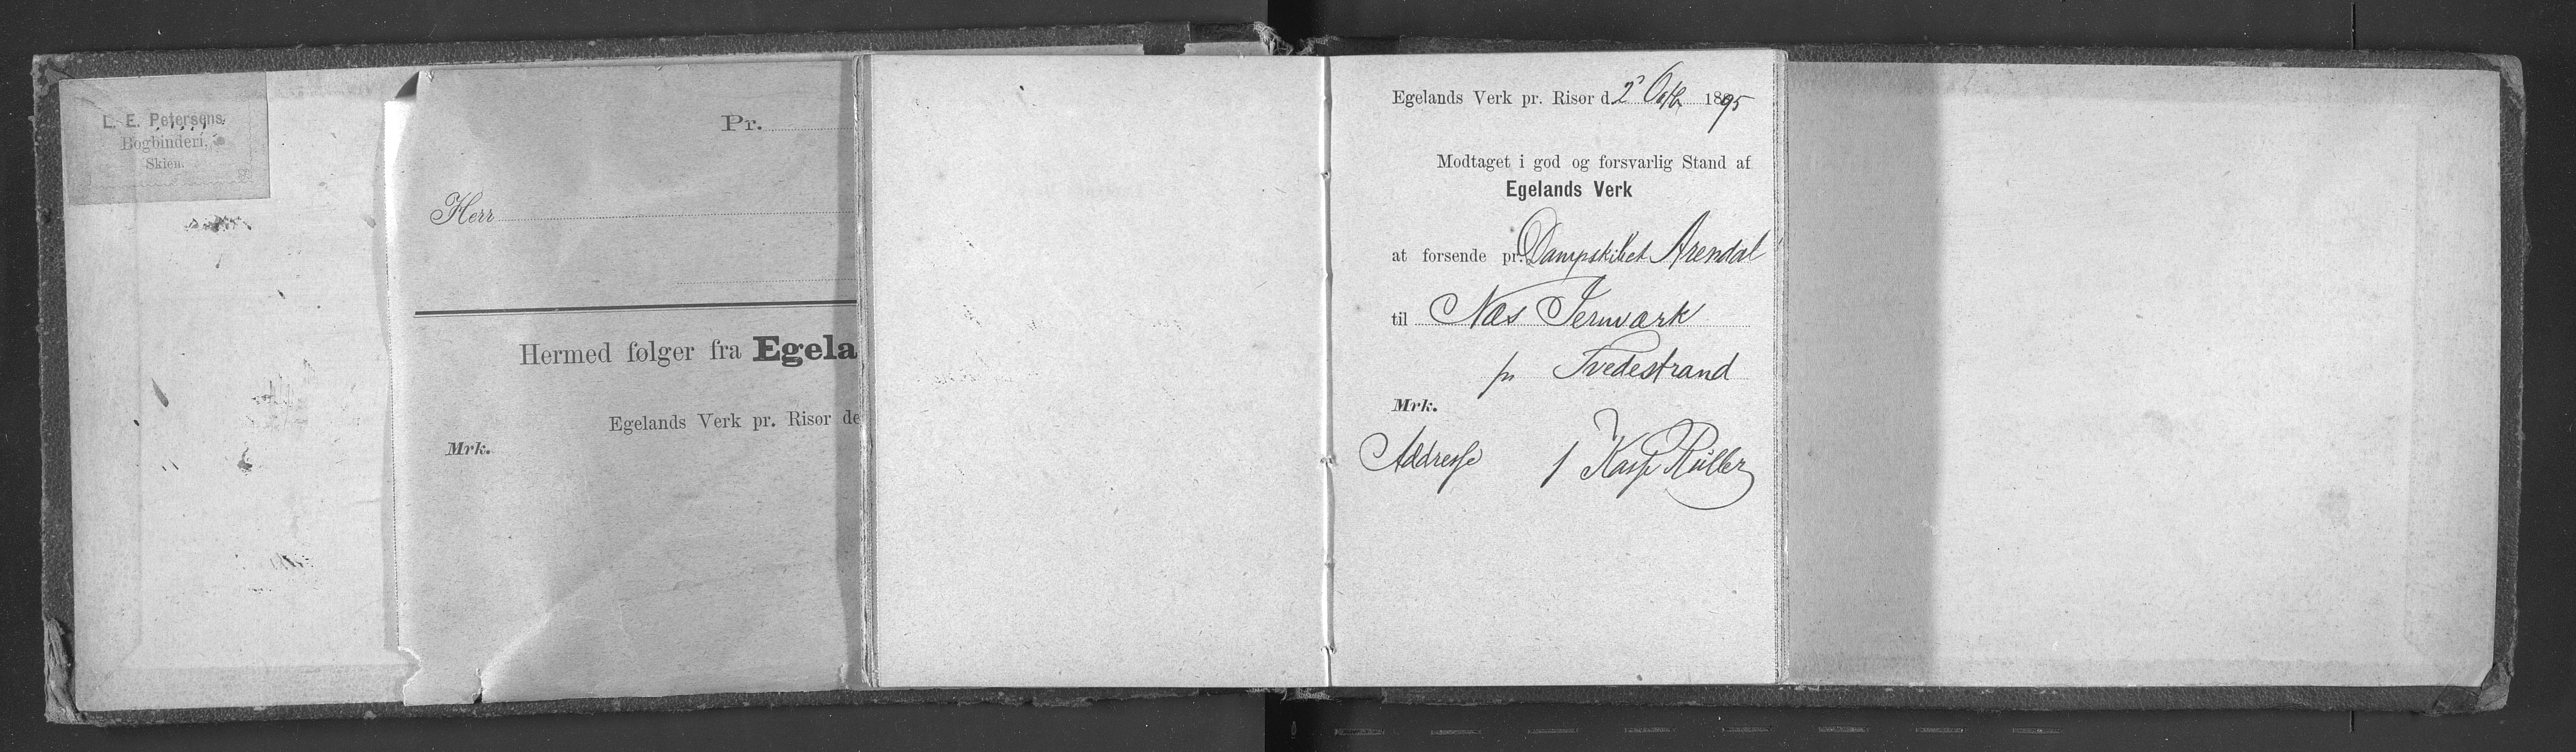 L. E. Petersens
Bogbinderi.
Skien.
Pr.
Herr
Hermed følger fra Egela
Egelands Verk pr. Risør de
Mrk.
Egelands Verk pr. Risør d. 2' Octb 1895
Modtaget i god og forsvarlig Stand af
Egelands Verk
at forsende pr. Dampskibet Arendal
til Næs Jernværk
pr Tvedestrand
Mrk.
Addresse 1 Kasse Ruller